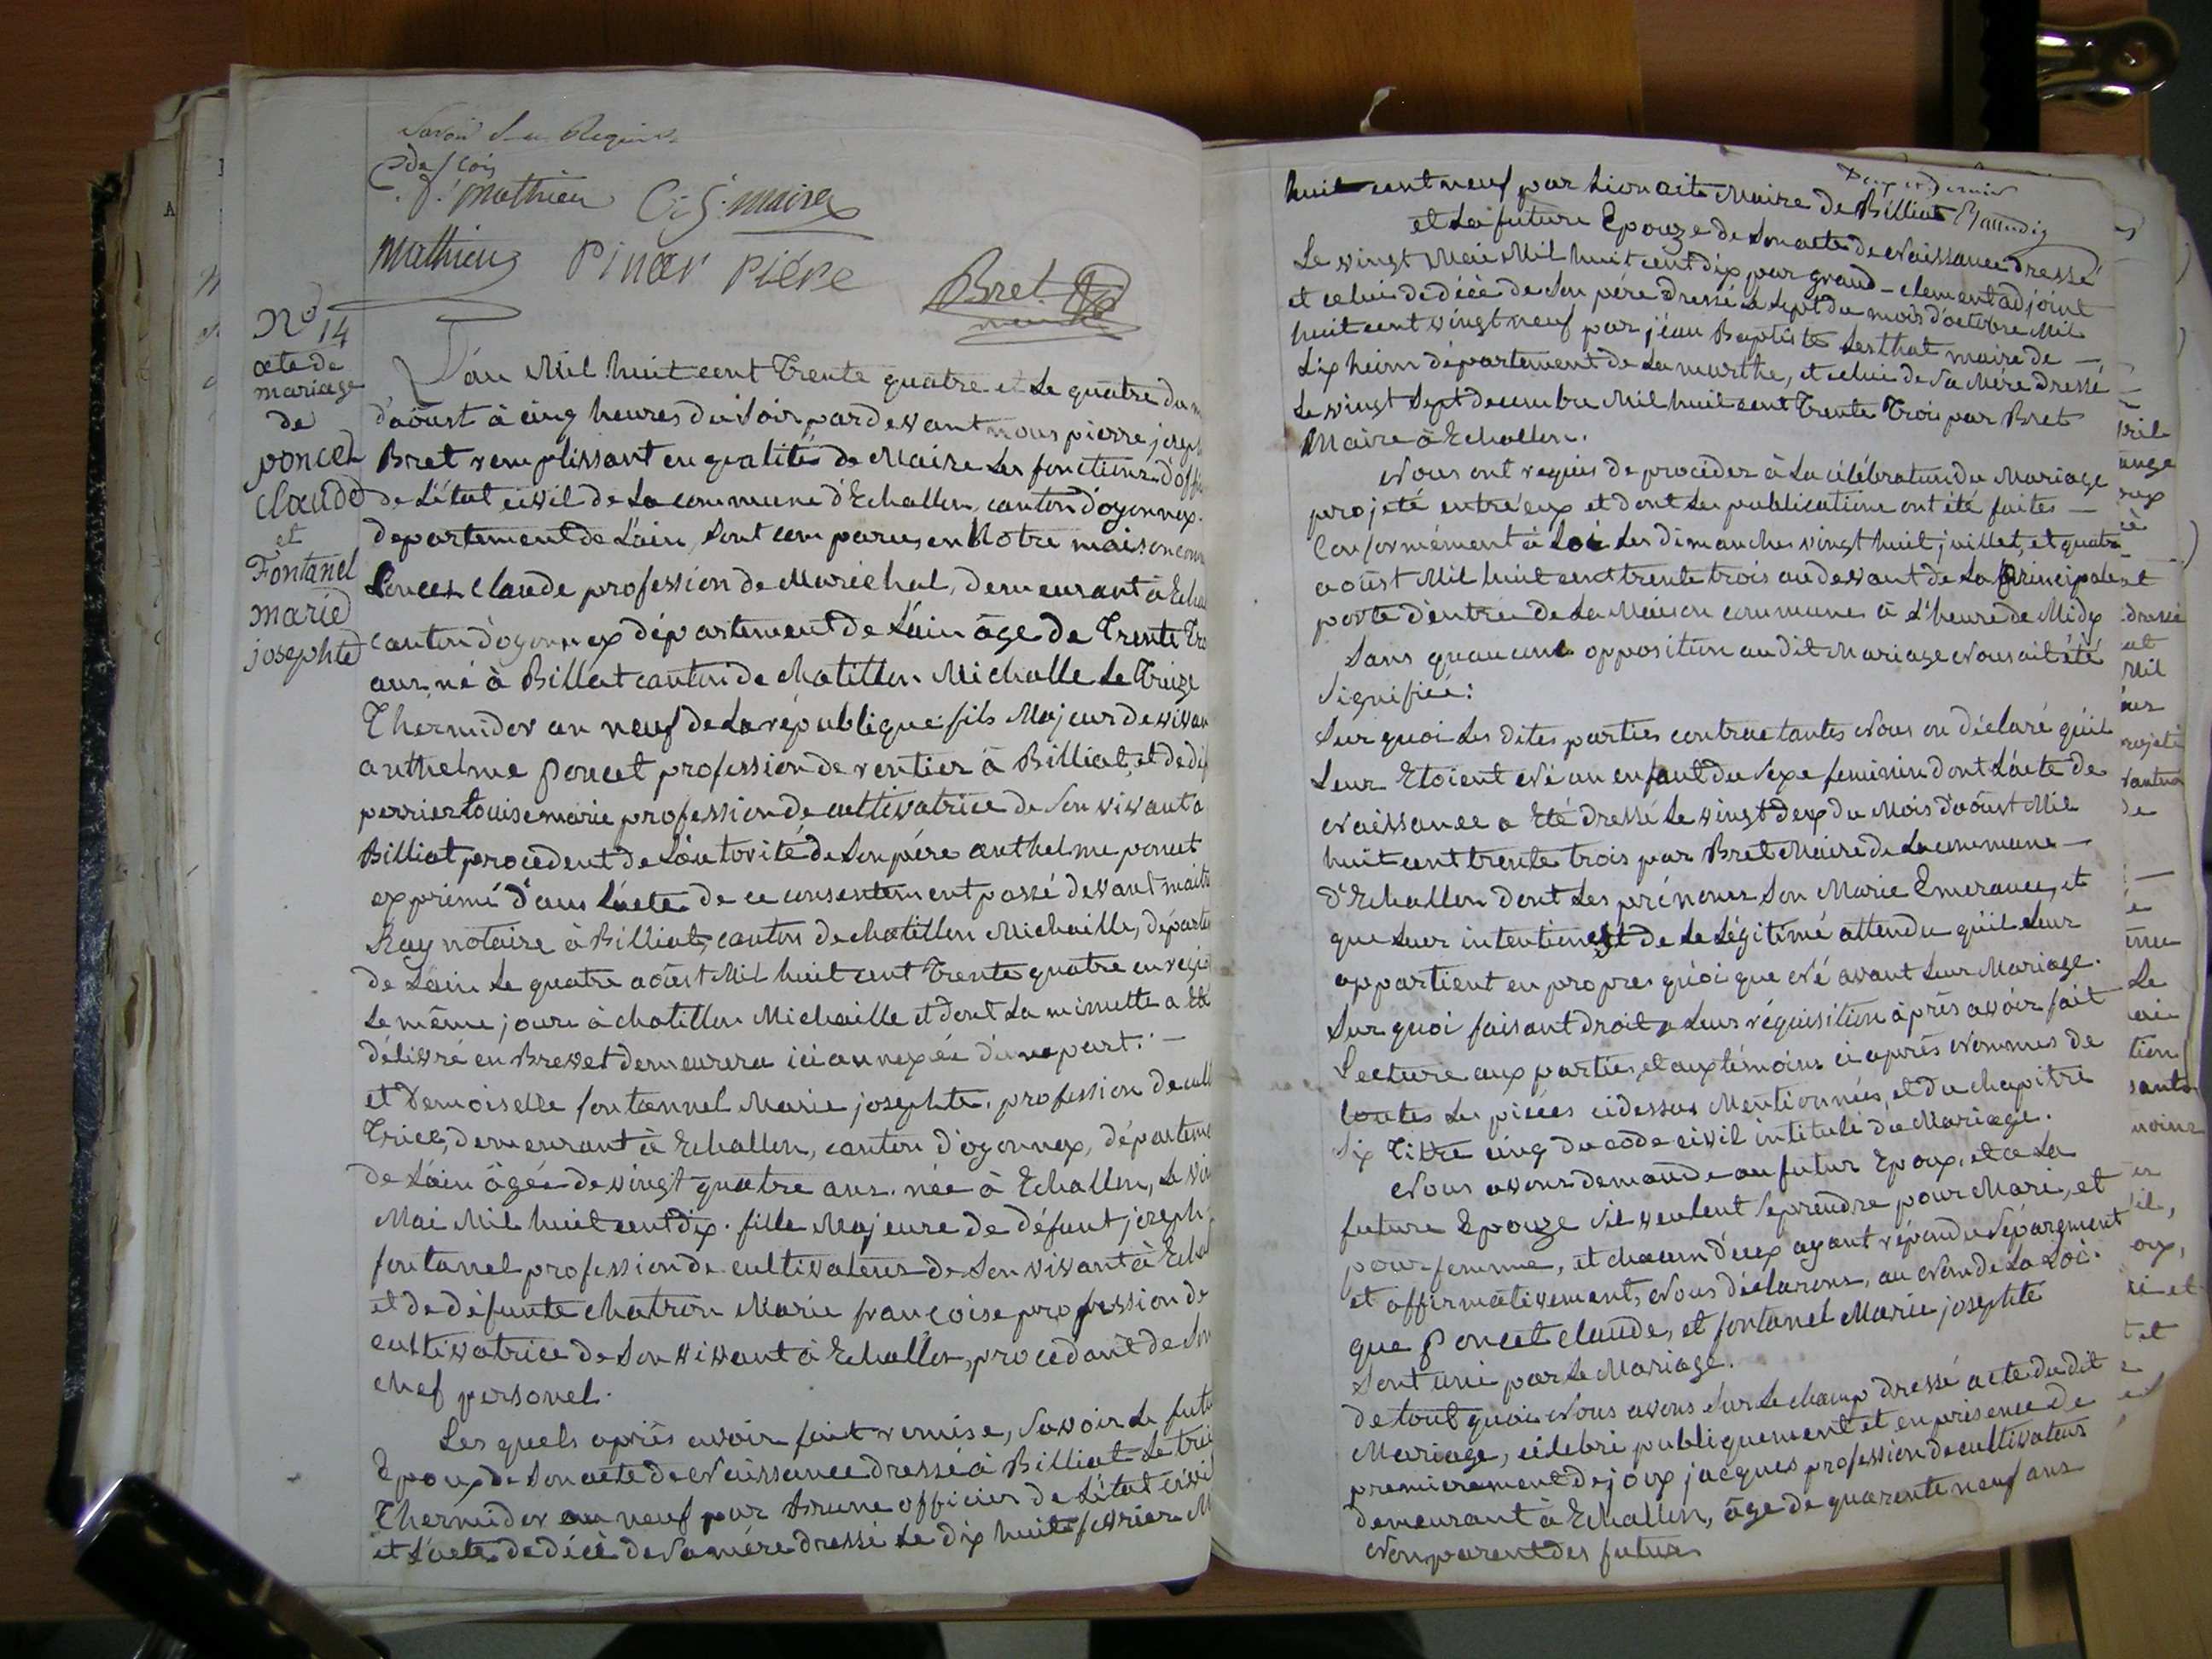 de la loi
f. mathieu C. J. maire
Mathieu Pinar Piére
Bret
maire
No 14
acte de
mariage
de
poncet
claude
et
Fontanel
marie
josephte
L'an Mil huit cent Trente quatre et Le quatre du
d'aoûst à cinq heures du Soir par devant nous pierre joseph
Bret remplissant en qualités de Maire Les fonctions d'offi
de L'état civil de La commune d'Echallon, canton d'oyonnax
departement de L'ain, Sont comparus en Notre maison com
Poncet Claude profession de Maréchal, demeurant à Echa
canton d'oyonnax département de L'ain âge de Trente Tro
ans, né à Billat canton de chatillon Michalle Le Treize
Thermidor an neuf de La république fils Majeur de vivan
anthelme Poncet profession de rentier à Billiat, et de déf
perrier Louise marie profession de cultivatrice de Son vivant a
Billiat, procedent de L'autorité de Son père anthelme poncet
exprimé dans L'acte de ce consentement passé devant maitre
Ray notaire à Billiat, canton de chatillon Michaille, départe
de L'ain Le quatre aoûst Mil huit cent Trente quatre enregi
Le même jour à chatillon Michaille et dont La minutte a été
délivré en Brevet demeurera ici annexée d'une part. —
et Demoiselle fontannel Marie josephte, profession de cult
Trice, demeurant à Echallon, canton d'oyonnax, départeme
de L'ain âgée de vingt quatre ans. née à Echallon, Le vin
Mai Mil huit cent dix. fille Majeure de défunt joseph
fontanel profession de cultivateur de Son vivant à Echal
et de défunte chatron Marie françoise profession de
cultivatrice de Son vivant à Echallon, procédant de Son
chef personel.
Les quels après avoir fait remise, Savoir Le futu
Epoux de Son acte de Naissance dressé à Billiat Le trei
Thermidor an neuf par Brune officier de L'état civil
et L'acte de décé de Sa mére dressé Le dix huit fevrier M
huit cent neuf par Maire de Billiat
et La future Epouze de Son acte de Naissance dressé
Le vingt Mai Mil huit cent dix par grand-clement adjoint
et celui de décè de Son père dressé Le Sept du mois d'octobre Mil
huit cent vingt neuf par jéan Baptiste Lesthat maire de —
Lixheim département de La murthe, et celui de Sa Mére dressé
Le vingt Sept decembre Mil huit cent Trente Trois par Bret
Maire à Echallon.
Nous ont requis de procéder à La célébration du Mariage
projeté entre'eux et dont Les publications ont été faites —
Conformément à Loi Les dimanches vingt huit juillet, et quatre
aoûst Mil huit cent trente trois au devant de La principale
porte d'entrée de La Maison commune à L'heure de Midy
Sans qu'aucune opposition au dit Mariage Nous ait été
Signifiée:
Sur quoi Les dites parties contractantes Nous on déclaré qu'il
Leur Etoient né un enfant du Sexe feminin dont L'acte de
Naissance a Eté dressé Le vingt deux du Mois d'aoûst Mil
huit cent trente trois par Bret Maire de La commune —
d'Echallon dont Les prénoms Son Marie Emerance, et
que Leur intention est de Le Légitimé attendu qu'il Leur
appartient en propres quoi que né avant Leur Mariage.
Sur quoi faisant droit a Leurs réquisition àprès avoir fait
Lecture aux parties, et aux témoins ci après Nommés de
toutes Les piéces cidessus Mentionnées, et du chapitre
Six Titre cinq du code civil intitulé du Mariage.
Nous avons demande au futur Epoux, et a La
future Epouze S'il veulent Se prendre pour Mari, et
pour femme, et chacun d'eux ayant répondu Séparement
et affirmativement, Nous déclarons, au Nom de La Loi.
que Poncet claude, et fontanel Marie josephte
Sont uni par Le Mariage.
de tout quoi Nous avons Sur Le champ dressé acte du dit
Mariage, célebré publiquement et en présence de
premierement dejoux jacques profession de cultivateur
demeurant à Echallon, âge de quarente neuf ans
Non parent des futurs